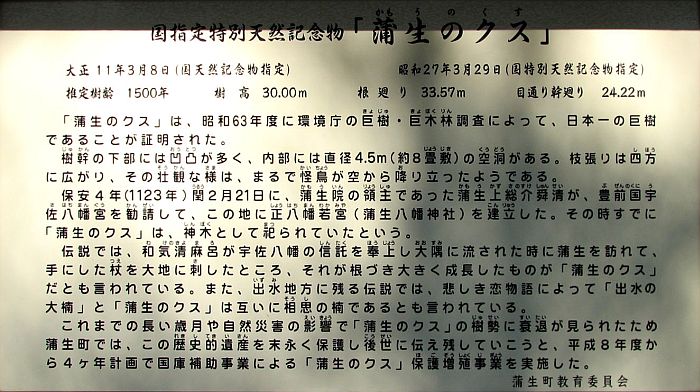 国指定特別天然記念物「蒲生のクス」
大正11年3月8日(国天然記念物指定) 昭和27年3月29日(国特別天然記念物指定)
推定樹齢 1500年 樹高 30.00m 根廻り 33.57m 目通り幹廻り 24.22m
「蒲生のクス」は、昭和63年度に環境庁の巨樹・巨木林調査によって、日本一の巨樹
であることが証明された。
樹幹の下部には凹凸が多く、内部には直径4.5m(約8畳敷)の空洞がある。枝張りは四方
に広がり、その壮観な様は、まるで怪鳥が空から降り立ったようである。
保安4年(1123年)閏2月21日に、蒲生院の領主であった蒲生上総介舜清が、豊前国宇
佐八幡宮を勧請して、この地に正八幡若宮(蒲生八幡神社)を建立した。その時すでに
「蒲生のクス」は、神木として祀られていたという。
伝説では、和気清麻呂が宇佐八幡の信託を奉上し大隅に流された時に蒲生を訪れて、
手にした杖を大地に刺したところ、それが根づき大きく成長したものが「蒲生のクス」
だとも言われている。また、出水地方に残る伝説では、悲しき恋物語によって「出水の
大楠」と「蒲生のクス」は互いに相思の楠であるとも言われている。
これまでの長い歳月や自然災害の影響で「蒲生のクス」の樹勢に衰退が見られたため
蒲生町では、この歴史的遺産を末永く保護し後世に伝え残していこうと、平成8年度か
ら4ヶ年計画で国庫補助事業による「蒲生のクス」保護増殖事業を実施した。
蒲生町教育委員会